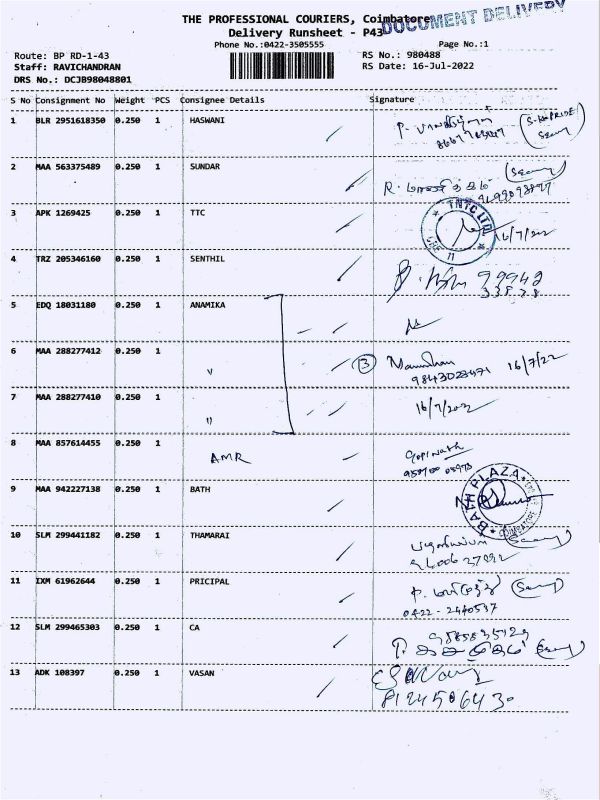 THE PROFESSIONAL COURIERS, Coimbatore
DOCUMENT DELIVERY
Delivery Runsheet - P43
Phone No.:0422-3505555
Page No.:1
Route: BP RD-1-43
RS No.: 980488
Staff: RAVICHANDRAN
RS Date: 16-Jul-2022
DRS No.: DCJB98048801
S No Consignment No Weight PCS Consignee Details Signature
1 BLR 2951618350 0.250 1 HASWANI
2 MAA 563375489 0.250 1 SUNDAR
3 APK 1269425 0.250 1 TTC
TNTC LTD
16/7/2022
4 TRZ 205346160 0.250 1 SENTHIL
99942
33828
5 EDQ 18031180 0.250 1 ANAMIKA
6 MAA 288277412 0.250 1 " 3 16/7/22
9843023471
7 MAA 288277410 0.250 1 " 16/7/2022
8 MAA 857614455 0.250 1 AMR Gopinath
9 MAA 942227138 0.250 1 BATH
BATH PLAZA
COIMBATORE
10 SLM 299441182 0.250 1 THAMARAI
94006 27092
11 IXM 61962644 0.250 1 PRICIPAL
0422-2440537
12 SLM 299465303 0.250 1 CA
13 ADK 108397 0.250 1 VASAN
8124506430